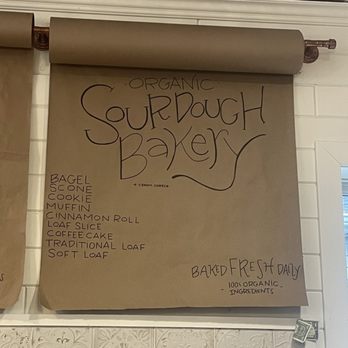 ORGANIC
SOURDOUGH
BAKERY
BAGEL
SCONE
COOKIE
MUFFIN
CINNAMON ROLL
LOAF SLICE
COFFEE CAKE
TRADITIONAL LOAF
SOFT LOAF
BAKED FRESH DAILY
100% ORGANIC
INGREDIENTS